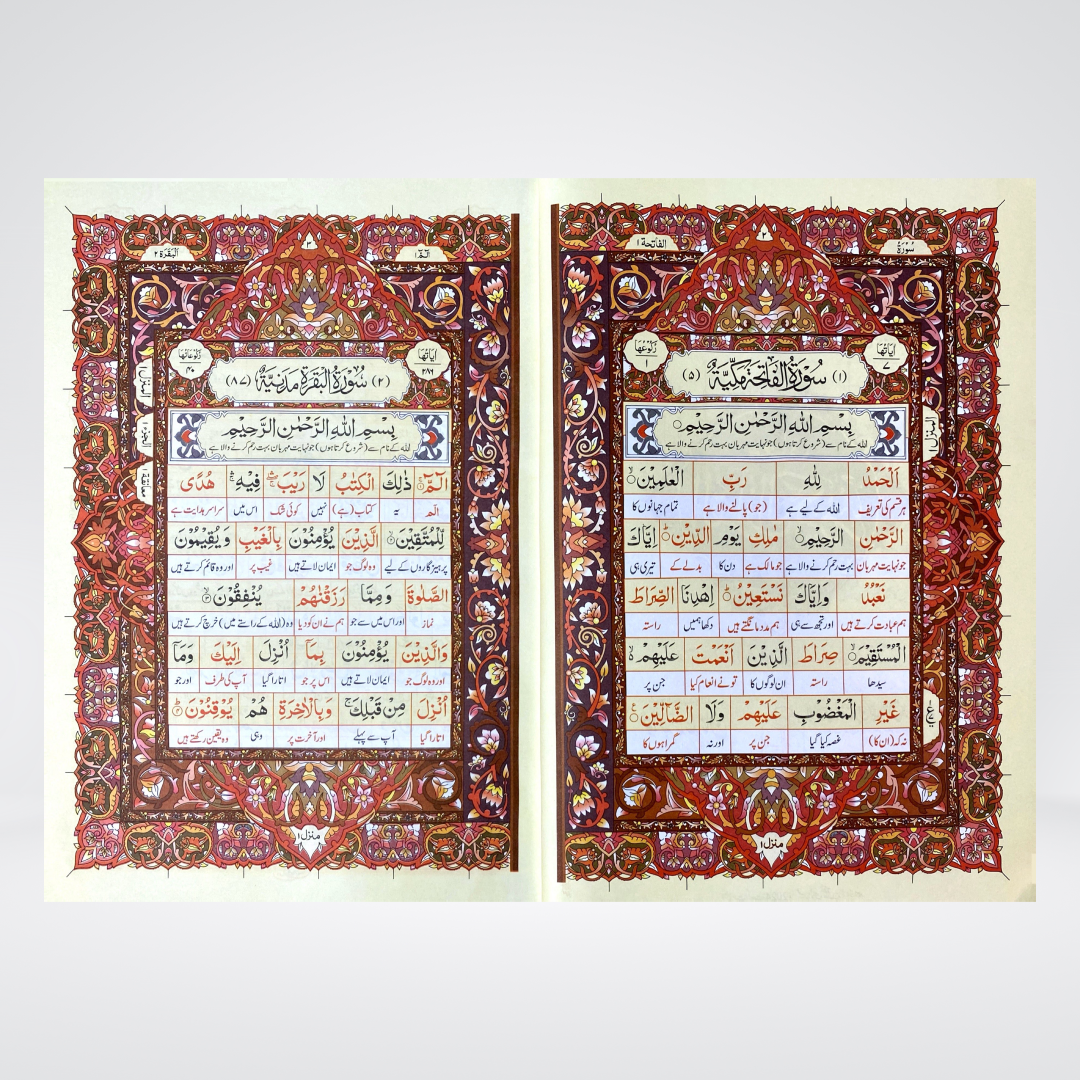 سُوْرَةُ
٢
الفَاتِحَة ١
اٰيَاتُهَا
٧
(١) سُوْرَةُ الْفَاتِحَةِ مَكِّيَّةٌ (٥)
رُكُوْعُهَا
١
بِسْمِ اللّٰهِ الرَّحْمٰنِ الرَّحِيْمِ
اللہ کے نام سے (شروع کرتا ہوں) جو نہایت مہربان بہت رحم کرنے والا ہے
اَلْحَمْدُ لِلّٰهِ رَبِّ الْعٰلَمِيْنَ
ہر قسم کی تعریف اللہ کے لیے ہے (جو) پالنے والا ہے تمام جہانوں کا
الرَّحْمٰنِ الرَّحِيْمِ مٰلِكِ يَوْمِ الدِّيْنِ اِيَّاكَ
جو نہایت مہربان بہت رحم کرنے والا ہے جو مالک ہے دن کا بدلے کے تیری ہی
نَعْبُدُ وَاِيَّاكَ نَسْتَعِيْنُ اِهْدِنَا الصِّرَاطَ
ہم عبادت کرتے ہیں اور تجھ سے ہی ہم مدد مانگتے ہیں دکھا ہمیں راستہ
الْمُسْتَقِيْمَ صِرَاطَ الَّذِيْنَ اَنْعَمْتَ عَلَيْهِمْ
سیدھا راستہ ان لوگوں کا تو نے انعام کیا جن پر
غَيْرِ الْمَغْضُوْبِ عَلَيْهِمْ وَلَا الضَّآلِّيْنَ
نہ کہ (ان کا) غصہ کیا گیا جن پر اور نہ گمراہوں کا
منزل ١
الٓمّٓ ١
٣
اَلْبَقَرَة ٢
اٰيَاتُهَا
٢٨٦
(٢) سُوْرَةُ الْبَقَرَةِ مَدَنِيَّةٌ (٨٧)
رُكُوْعَاتُهَا
٤٠
بِسْمِ اللّٰهِ الرَّحْمٰنِ الرَّحِيْمِ
اللہ کے نام سے (شروع کرتا ہوں) جو نہایت مہربان بہت رحم کرنے والا ہے
الٓمّٓ ذٰلِكَ الْكِتٰبُ لَا رَيْبَ فِيْهِ هُدًى
الٓمٓ یہ کتاب (ہے) نہیں کوئی شک اس میں سراسر ہدایت ہے
لِّلْمُتَّقِيْنَ الَّذِيْنَ يُؤْمِنُوْنَ بِالْغَيْبِ وَيُقِيْمُوْنَ
پرہیزگاروں کے لیے وہ لوگ جو ایمان لاتے ہیں غیب پر اور وہ قائم کرتے ہیں
الصَّلٰوةَ وَمِمَّا رَزَقْنٰهُمْ يُنْفِقُوْنَ
نماز اور اس میں سے جو ہم نے ان کو دیا وہ (اللہ کے راستے میں) خرچ کرتے ہیں
وَالَّذِيْنَ يُؤْمِنُوْنَ بِمَآ اُنْزِلَ اِلَيْكَ وَمَآ
اور وہ لوگ جو ایمان لاتے ہیں اس پر جو اتارا گیا آپ کی طرف اور جو
اُنْزِلَ مِنْ قَبْلِكَ وَبِالْاٰخِرَةِ هُمْ يُوْقِنُوْنَ
اتارا گیا آپ سے پہلے اور آخرت پر وہی وہ یقین رکھتے ہیں
منزل ١